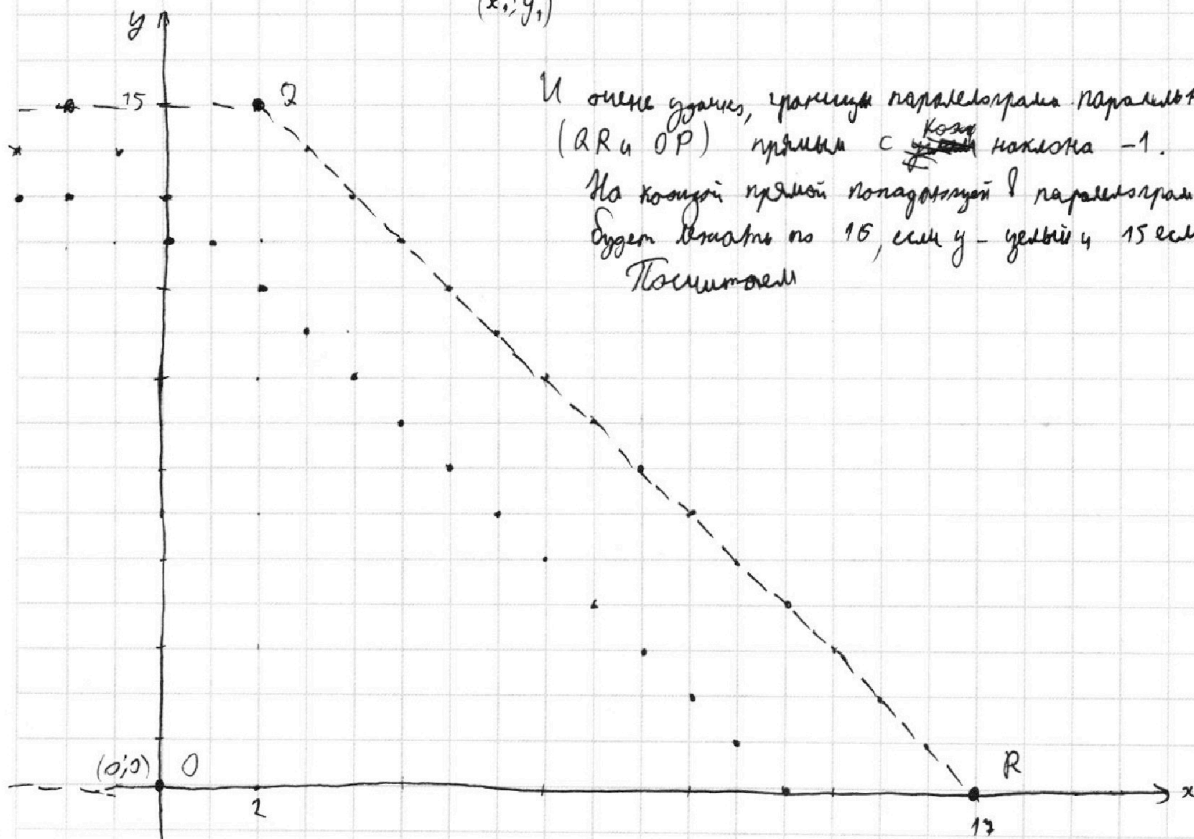 (x₁; y₁)
y
15
Q
И очень удачно, границы паралелограма паралельн
(QR и OP) прямым с коэф наклона -1.
На каждой прямой попадающей в паралелограм
будет лежать по 16, если y - целый и 15 если
Посчитаем
(0;0) O
2
R
17
x